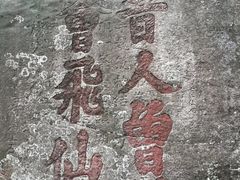 昔人曾
曾飛仙